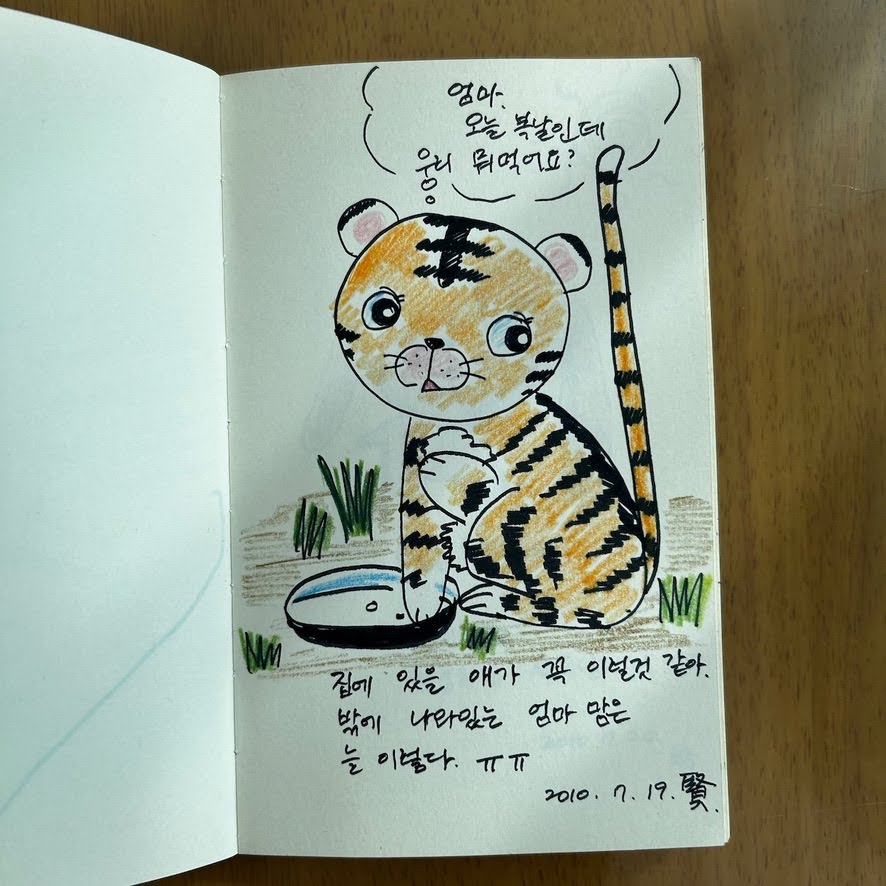 엄마.
오늘 복날인데
웅리 뭐먹어요?
집에 있을 애가 꼭 이럴것 같아.
밖에 나와있는 엄마 맘은
늘 이렇다. ㅠㅠ
2010. 7. 19. 賢.